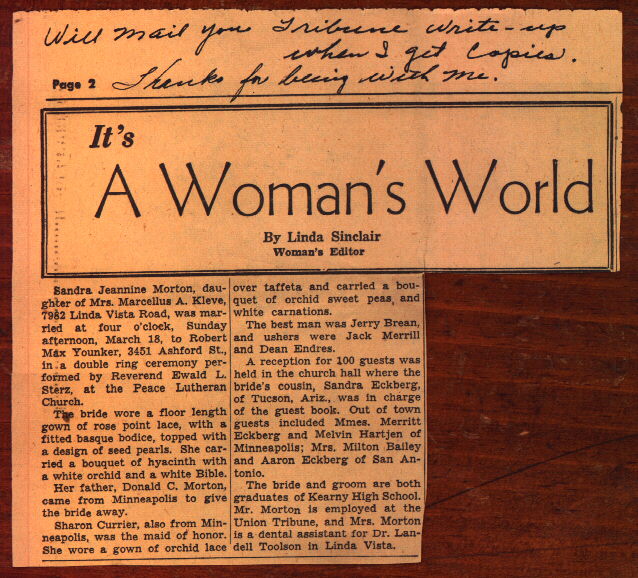 Will mail you Tribune write-up
when I get copies.
Page 2 Thanks for being with me.
It's
A Woman's World
By Linda Sinclair
Woman's Editor
Sandra Jeannine Morton, dau-
ghter of Mrs. Marcellus A. Kleve,
7982 Linda Vista Road, was mar-
ried at four o'clock, Sunday
afternoon, March 18, to Robert
Max Younker, 3451 Ashford St.,
in a double ring ceremony per-
formed by Reverend Ewald L.
Sterz, at the Peace Lutheran
Church.
The bride wore a floor length
gown of rose point lace, with a
fitted basque bodice, topped with
a design of seed pearls. She car-
ried a bouquet of hyacinth with
a white orchid and a white Bible.
Her father, Donald C. Morton,
came from Minneapolis to give
the bride away.
Sharon Currier, also from Min-
neapolis, was the maid of honor.
She wore a gown of orchid lace
over taffeta and carried a bou-
quet of orchid sweet peas, and
white carnations.
The best man was Jerry Brean,
and ushers were Jack Merrill
and Dean Endres.
A reception for 100 guests was
held in the church hall where the
bride's cousin, Sandra Eckberg,
of Tucson, Ariz., was in charge
of the guest book. Out of town
guests included Mmes. Merritt
Eckberg and Melvin Hartjen of
Minneapolis; Mrs. Milton Bailey
and Aaron Eckberg of San An-
tonio.
The bride and groom are both
graduates of Kearny High School.
Mr. Morton is employed at the
Union Tribune, and Mrs. Morton
is a dental assistant for Dr. Lan-
dell Toolson in Linda Vista.